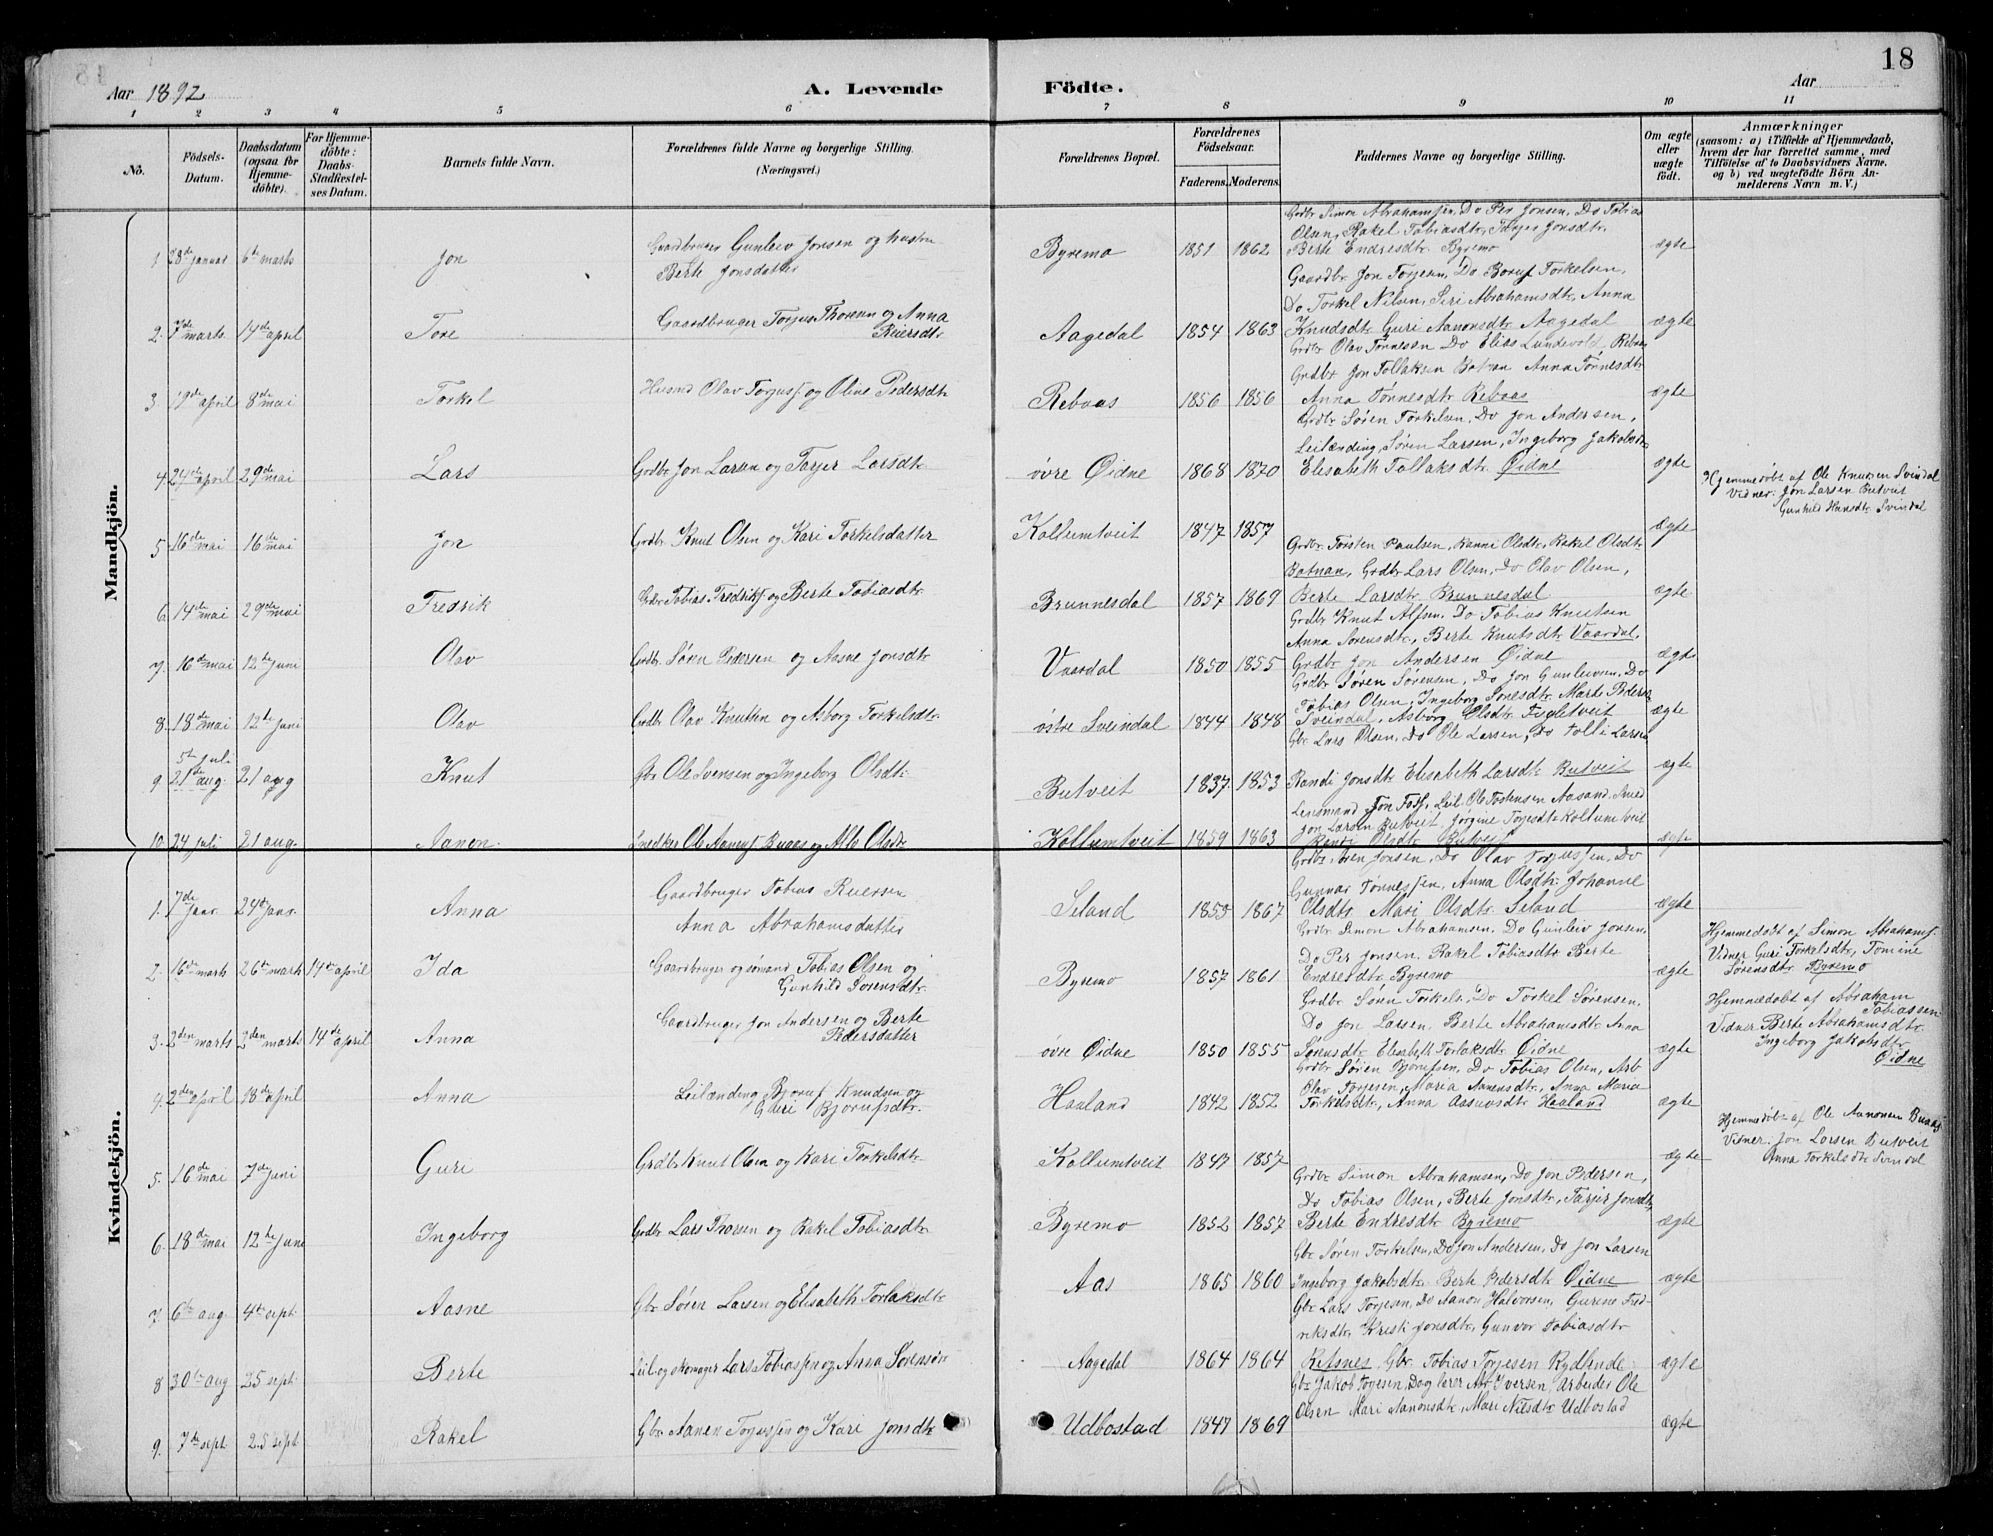 18
Aar 1892
A. Levende Födte.
Aar
1 2 3 4 5 6 7 8 9 10 11
No.
Födsels-Datum.
Daabsdatum (ogsaa for Hjemmedöbte).
For Hjemmedöbte: Daabs-Stadfæstelses Datum.
Barnets fulde Navn.
Forældrenes fulde Navne og borgerlige Stilling. (Næringsvei.)
Forældrenes Bopæl.
Forældrenes Födselsaar.
Faderens. Moderens.
Faddernes Navne og borgerlige Stilling.
Om ægte eller uægte födt.
Anmærkninger
(saasom: a) i Tilfælde af Hjemmedaab, hvem der har forrettet samme, med Tilföielse af to Daabsvidners Navne, og b) ved uægtefödte Börn Anmelderens Navn m. V.)
Mandkjön.
1. 28de januar 6te marts Jon Gaardbruger Gunleiv Jonsen og hustru Berte Jonsdatter Byremo 1851 1862 ægte
Grdbr Simon Abrahamsen, Do Per Jonsen, Do Tobias
Olsen, Rakel Tobiasdtr, Tarjer Jonsdtr.
Berte Endresdtr. Byremo
2. 7de marts 14de april Tore Gaardbruger Torjus Thoresen og Anna Reiersdtr. Aagedal 1854 1863 ægte
Gaardbr Jon Torjesen, Do Torkelsen,
Do Torkel Nilsen, Siri Abrahamsdtr, Anna
Knudsdtr Guri Aanonsdtr Aagedal
3. 19de april 8de mai Torkel Husmd Olav Torjuss. og Oline Pedersdtr Rebaas 1856 1856 ægte
Grdbr Olav Tønnesen Do Elias Lundevold, Rebaas
Grdbr Jon Tollaksen Botnan Anna Tønnesdtr
Anna Tønnesdtr Rebaas
4. 24de april 29de mai Lars Grdbr Jon Larsen og Tarjer Larsdtr. øvre Øidne 1868 1870 ægte
Grdbr Søren Torkelsen, Do Jon Andersen,
Leilænding Søren Larsen, Ingeborg Jakobsdtr
Elisabeth Tollaksdtr. Øidne
5. 16de mai 16de mai Jon Grdbr Knut Olsen og Kari Torkelsdatter Kollumtveit 1847 1857 ægte
Hjemmedøbt af Ole Knutsen Svindal
Vidner: Jon Larsen Butveit
Gunhild Hansdtr Svindal
6. 14de mai 29de mai Fredrik Grdbr Tobias Fredriks. og Berte Tobiasdtr. Brunnesdal 1857 1869 ægte
Grdbr Torsten Paulsen, Olsdtr, Rakel Olsdtr
Botnan, Grdbr Lars Olsen, Do Olav Olsen,
Berte Larsdtr Brunnesdal
7. 16de mai 12te juni Olav Grdbr. Søren Pedersen og Aasne Jonsdtr Vaardal 1850 1855 ægte
Grdbr Knut Alfsen, Do Tobias Knutsen
Anna Sørensdtr, Berte Knutsdtr Vaardal,
Grdbr Jon Andersen Øidne
8. 18de mai 12te juni Olav Grdbr Olav Knutsen og Asborg Torkelsdtr. østre Sveindal 1844 1848 ægte
Grdbr Søren Sørensen, Do Jon Gunleivsen, Do
Tobias Olsen, Ingeborg Marte Peders
Sveindal, Asborg Olsdtr
9. 5te juli 21de aug. 21 aug Knut Gbr Ole Svensen og Ingeborg Olsdtr. Butveit 1837 1853 ægte
Gbr Lars Olsen, Do Ole Larsen, Do Larsen
Randi Jonsdtr Elisabeth Larsdtr Butveit
10. 24 juli 21 aug. Aanon. Snedker Ole Buaas og Olsdtr Kollumtveit 1859 1863 ægte
Lensmand Leil. Ole Torkensen Aasand, Smed
Jon Larsen Butveit, Jorgine Torjesdtr Kollumtveit
Olsdtr. Butveit
Kvindekjön.
1. 7de jaar. 24de jan. Anna Gaardbruger Tobias Reiersen Anna Abrahamsdatter Seland 1853 1867 ægte
Grdbr. Jonsen, Do Olav Torjussen, Do
Gunnar Tønnessen, Anna Olsdtr. Johanne
Olsdtr Mari Olsdtr. Seland
2. 16de marts 26te marts 14de april Ida Gaardbruger og sømand Tobias Olsen og Gunhild Sorensdtr. Byremo 1857 1861 ægte
Grdbr Simon Abrahamsen, Do Gunleiv Jonsen,
Do Per Jonsen. Rakel Tobiasdtr Berte
Endresdtr. Byremo
Hjemmedobt af Simon Abrahams.
Vidner Guri Torkelsdtr, Tomine
Sorensdtr. Byremo
3. 2den marts 2den marts 14de april Anna Gaardbruger Jon Andersen og Berte Pedersdatter øvre Øidne 1850 1855 ægte
Grdbr. Søren Torkels., Do Torkel Sørensen.
Do Jon Larsen. Berte Abrahamsdtr Anna
Sørensdtr Elisabeth Torlaksdtr. Øidne
Hjemmedobt af Abraham
Tobiassen
Vidner Berte Abrahamsdtr.
Ingeborg Jakobsdtr
Øidne
4. 2den april 18de april Anna Leilænding Bjorus. Knudsen og Guri Bjorusdtr. Haaland 1842 1852 ægte
Grdbr Søren, Do Tobias Olsen, Arb
Olav Torjesen, Maria Aanensdtr, Anna Maria
Torkelsdtr, Anna Haaland
5. 16de mai 7de juni Guri Grdbr Knut Olsen og Kari Torkelsdtr. Kollumtveit 1847 1857 ægte
Hjemmedobt af Ole Aanonsen Buaas
Vidner. Jon Larsen Butveit
Anna Torkelsdtr Svindal
6. 18de mai 12te juni Ingeborg Grdbr Lars Thorsen og Rakel Tobiasdtr. Byremo 1852 1857 ægte
Grdbr Simon Abrahamsen, Do Jon Pedersen,
Do Tobias Olsen, Berte Jonsdtr, Tarjer Jonsdtr,
Berte Endresdtr Byremo
7. 6te aug. 4te sept. Aasne Gbr Søren Larsen og Elisabeth Torlaksdtr Aas 1865 1860 ægte
Gbr Søren Torkelsen, Do Jon Andersen, Do Jon Larsen
Ingeborg Jakobsdtr. Berte Pedersdtr. Øidne
8. 30te aug 25 sept. Berte Leil. og skomager Lars Tobiassen og Anna Sørensdtr Aagedal 1864 1864 ægte
Gbr Lars Torjesen, Do Aanon Halvorsen, Gurine Fred-
riksdtr, Kristi Jonsdtr, Gunvor Tobiasdtr
Retsnes. Gbr. Tobias Torjesen
9. 7de sept. 25 sept. Rakel Gbr Aanen Torjussen og Kari Jonsdtr Udbostad 1847 1869 ægte
Gbr Jakob Torjesen, Do og lærer Iversen, Arbeider Ole
Olsen Mari Aanonsdtr, Mari Nilsdtr Udbostad